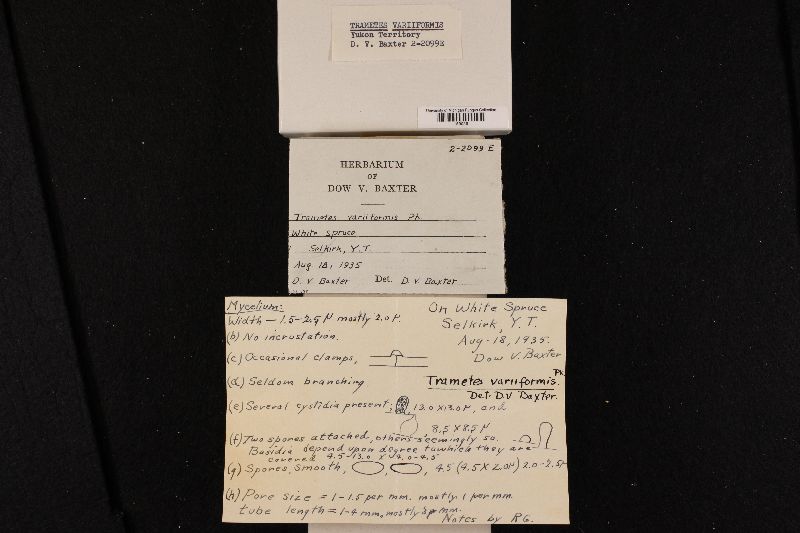 TRAMETES VARIIFORMIS
Yukon Territory
D. V. Baxter 2-2099E
University of Michigan Fungus Collection
2-2099 E
HERBARIUM
OF
DOW V. BAXTER
Trametes variiformis Pk.
White Spruce
Selkirk, Y.T.
Aug 18, 1935
D. V Baxter Det. D. V Baxter
Mycelium:
Width - 1.5-2.5 µ mostly 2.0 µ.
(b) No incrustation.
(c) Occasional clamps,
(d) Seldom branching
(e) Several cystidia present; 13.0 X 13.0 µ, and
8.5 X 8.5 µ
(f) Two spores attached, others seemingly so.
Basidia depend upon degree to which they are
covered 4.5-13.0 X 4.0-4.5
(g) Spores, smooth, , , 4.5 (4.5 X 2.0 µ) 2.0-2.5 µ
(h) Pore size = 1-1.5 per mm. mostly 1 per mm.
tube length = 1-4 mm, mostly mm.
Notes by RG.
On White Spruce
Selkirk, Y.T.
Aug-18, 1935.
Dow V. Baxter
Trametes variiformis Pk.
Det. D.V Baxter.